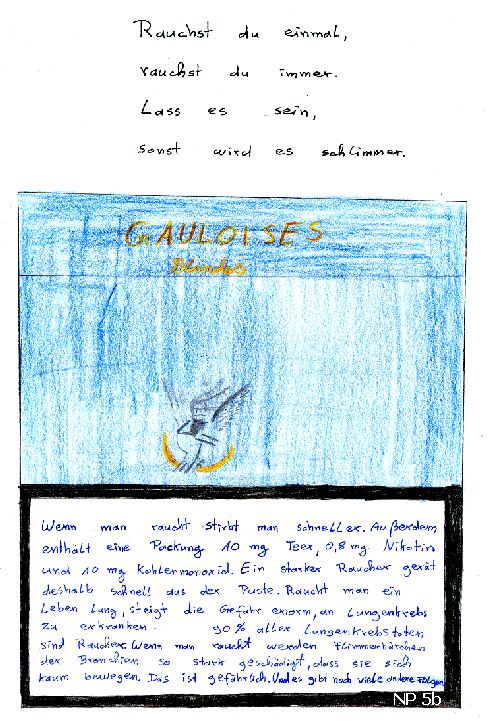 Rauchst du einmal,
rauchst du immer.
Lass es sein,
sonst wird es schlimmer.
GAULOISES
Blondes
Wenn man raucht stirbt man schneller. Außerdem
enthält eine Packung 10 mg Teer, 0,8 mg Nikotin
und 10 mg Kohlenmonoxid. Ein starker Raucher gerät
deshalb schnell aus der Puste. Raucht man ein
Leben lang, steigt die Gefahr enorm, an Lungenkrebs
zu erkranken. 90% aller Lungenkrebstoten
sind Raucher. Wenn man raucht werden Flimmerhärchen
der Bronchien so stark geschädigt, dass sie sich
kaum bewegen. Das ist gefährlich. Und es gibt noch viele andere Folgen.
NP 5b